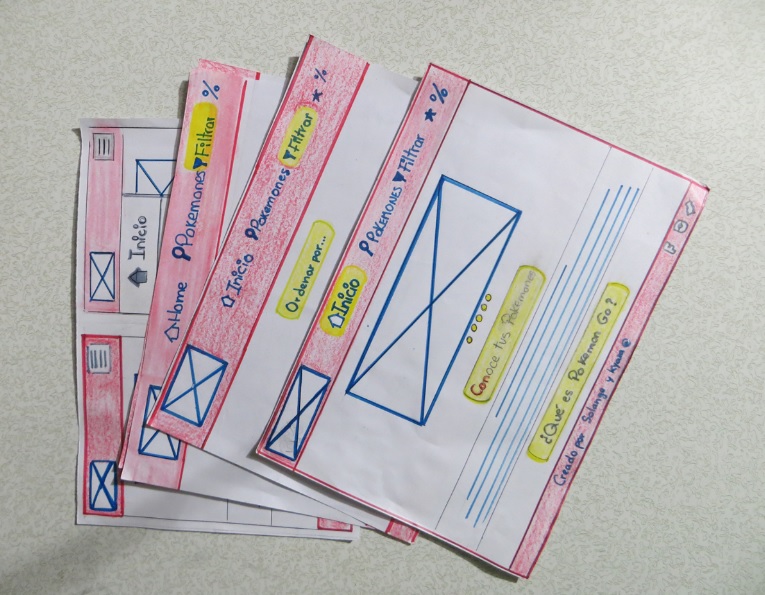 Inicio
Home Pokemones Filtrar %
Inicio Pokemones Filtrar ★ %
Ordenar por...
Inicio Pokemones Filtrar ★ %
Conoce tus Pokemones
¿Qué es Pokemon Go?
Creado por Solange y